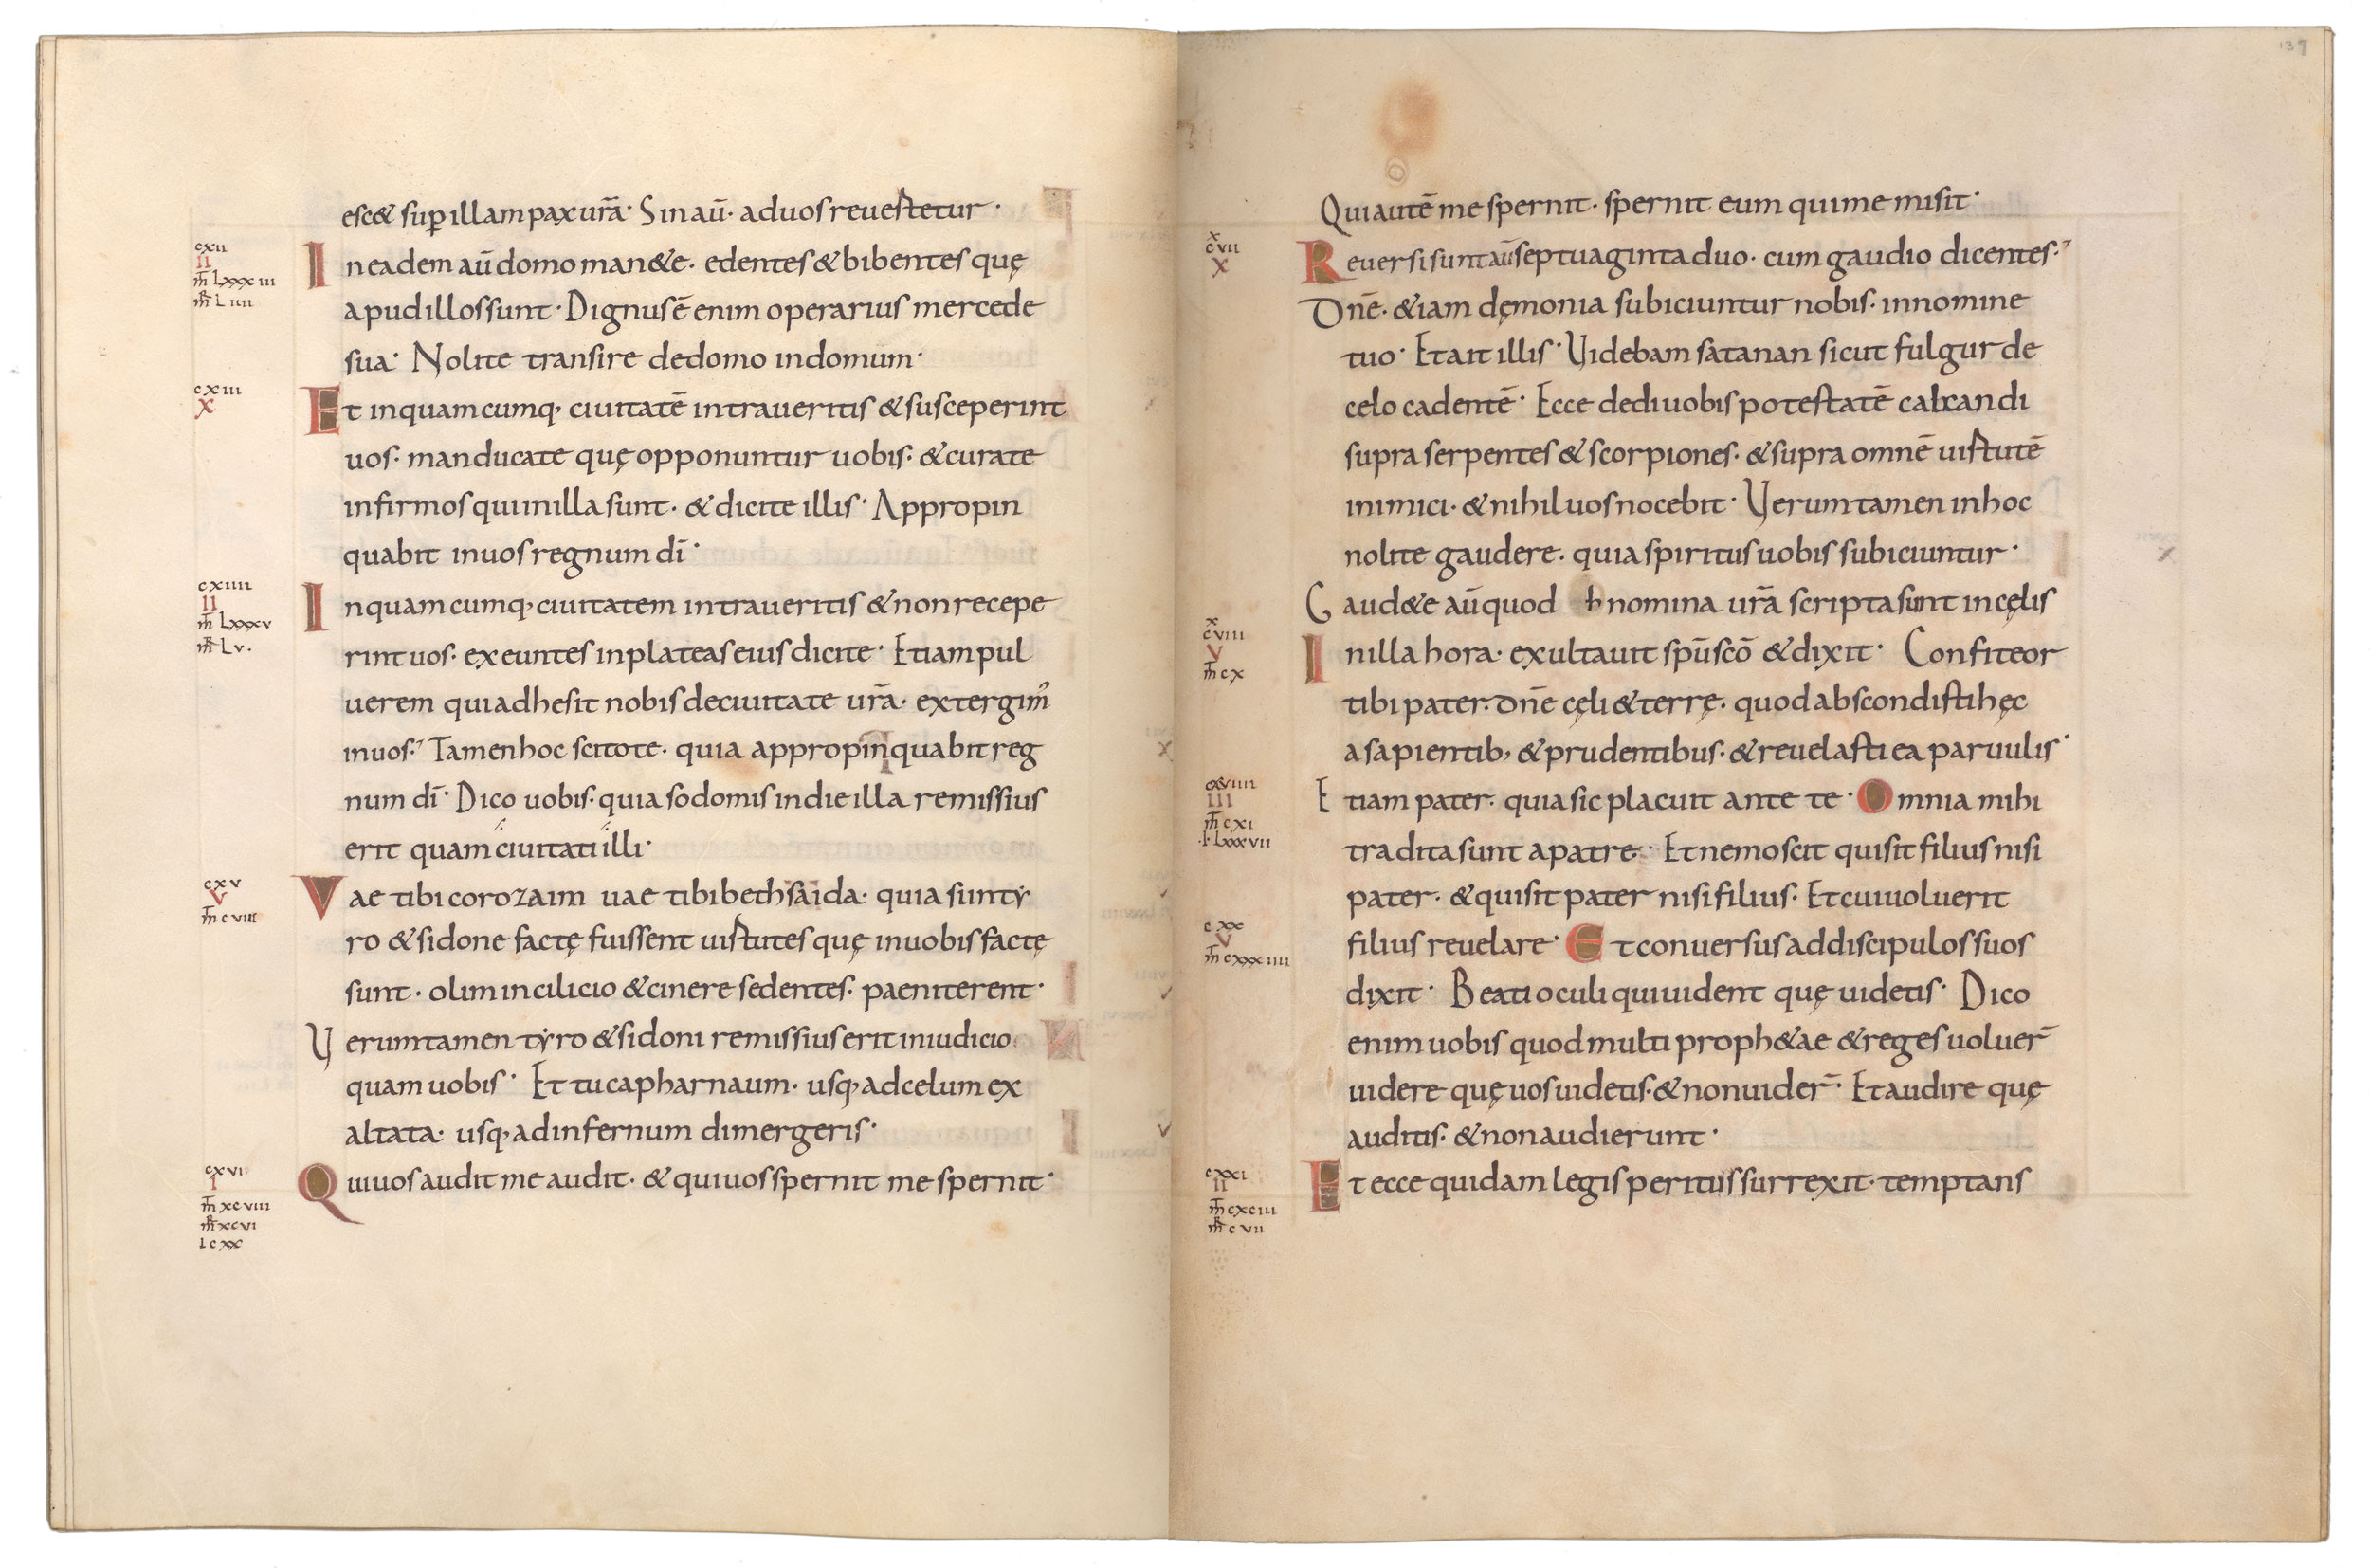 esc& sup illam pax ur̄a· Sin aū· ad uos reuertetur·
cxii
II
m̄ Lxxxiii
m̄r Liiii
In eadem aū domo man&e· edentes & bibentes quę
apud illos sunt· Dignus ē enim operarius mercede
sua· Nolite transire de domo in domum·
cxiii
X
Et in quamcumq; ciuitatē intraueritis & susceperint
uos· manducate quę opponuntur uobis· & curate
infirmos qui in illa sunt· & dicite illis· Appropin
quabit in uos regnum dī·
cxiiii
II
m̄ Lxxxv
m̄r Lv·
In quamcumq; ciuitatem intraueritis & non recepe
rint uos· exeuntes in plateas eius dicite· Etiam pul
uerem qui adhesit nobis de ciuitate ur̄a· extergim᾽
in uos· Tamen hoc scitote· quia appropinquabit reg
num dī· Dico uobis· quia sodomis in die illa remissius
erit quam ciuitati illi·
cxv
V
m̄ cviii
Vae tibi corozaim uae tibi bethsaida· quia si in tẏ
ro & sidone factę fuissent uirtutes quę in uobis factę
sunt· olim in cilicio & cinere sedentes· paeniterent·
Uerumtamen tẏro & sidoni remissius erit in iudicio
quam uobis· Et tu capharnaum· usq; ad celum ex
altata· usq; ad infernum dimergeris·
cxvi
I
m̄ xcviii
m̄r xcvi
I cxx
Qui uos audit me audit· & qui uos spernit me spernit·
137
Qui autē me spernit· spernit eum qui me misit·
x
cvii
X
Reuersi sunt aū septuaginta duo· cum gaudio dicentes·
Dn̄e· &iam dęmonia subiciuntur nobis· in nomine
tuo· Et ait illis· Uidebam satanan sicut fulgur de
celo cadentē· Ecce dedi uobis potestatē calcandi
supra serpentes & scorpiones· & supra omnē uirtutē
inimici· & nihil uos nocebit· Uerumtamen in hoc
nolite gaudere· quia spiritus uobis subiciuntur·
Gaud&e aū quod nomina ur̄a scripta sunt in cęlis
x
cviii
V
m̄ cx
In illa hora· exultauit spū scō & dixit· Confiteor
tibi pater· dn̄e cęli & terrę· quod abscondisti hęc
a sapientib; & prudentibus· & reuelasti ea paruulis·
cxviiii
III
m̄ cxi
I· Lxxxvii
Etiam pater· quia sic placuit ante te· Omnia mihi
tradita sunt a patre· Et nemo scit qui sit filius nisi
pater· & qui sit pater nisi filius· Et cui uoluerit
cxx
V
m̄ cxxxiiii
filius reuelare· Et conuersus ad discipulos suos
dixit· Beati oculi qui uident quę uidetis· Dico
enim uobis quod multi proph&ae & reges uoluer̄
uidere quę uos uidetis· & non uider̄· Et audire quę
auditis· & non audierunt·
cxxi
II
m̄ cxciii
m̄r cvii
Et ecce quidam legis peritus surrexit· temptans